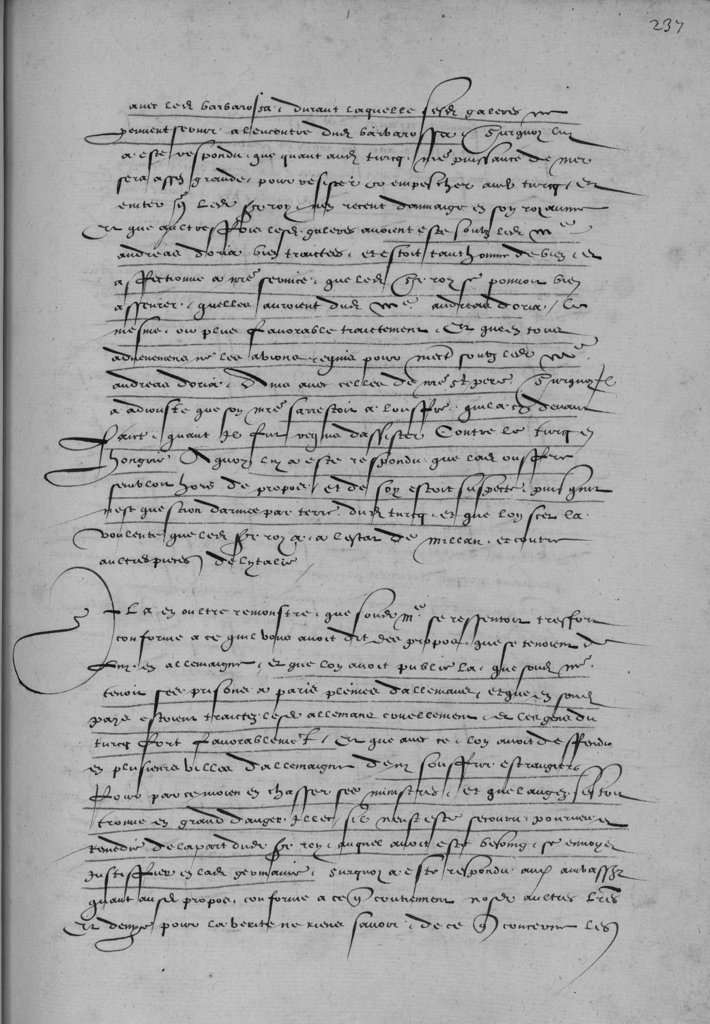 237
avec led barbarossa, durant laquelle sesd galeres ne
peuvent servir a lencontre dud barbarossa, Surquoy luy
a este respondu, que quant aud turcq, nre puissance de mer
sera assez grande, pour resister et empescher aud turcq, Et
eviter q led Sr roy, nen recent dommaige en son royaume
Et que aultresfois lesd galeres avoient este soubz led me
andreas doria bien traictees, et estoit tant homme de bien, et
affectionne a nre service, que led Sr roy se pouvoit bien
asseurer, quelles auroient dud me andreas doria, le
mesme, ou plus favorable traictement, Et que en tous
advenemens ne les avions requis pour mectre soubz led me
andreas doria, avec celles de nre st pere Surquoy Il
a adiouste que son me sarrestoit a louffre, quil a cy devant
faict, quant Il fut requis dassister Contre le turcq en
hongrie, A quoy luy a este respondu, que lad ouffre
sembloit hors de propoz, et de soy estoit suspecte, puis quil
nest question darmee par terre, dud turcq, et que lon scet la
voulente que led Sr roy a, a lestat de millan, et contre
aultres pieces delytalie
Il a en oultre remonstre, que sond me se ressentoit tresfort
conforme a ce quil vous avoit dit des propoz, que se tenoient de
luy, en allemaigne, et que lon avoit publie la, que sond me
tenoit ses prisons a paris pleines dallemans, et que en sond
pays estoient traictez lesd allemans cruellement, et les gens du
turcq fort favorablement, Et que avec ce, lon avoit deffendu
en plusieurs villes dallemaigne de ny souffrir estrangiers
Pour par ce moien en chasser ses ministres, et que langez sestoit
trouve en grand danger Illec, sil neust este secouru, pourveu et
remedie de la part dud Sr roy, auquel avoit este besoing, se envoyer
Justiffier en lad germanie, Surquoy a este respondu aux ambassrs
quant ausd propoz, conforme a ce q contiennent nosd aultres lres
Et depuis pour la verite ne riens savoir, de ce q concerne les